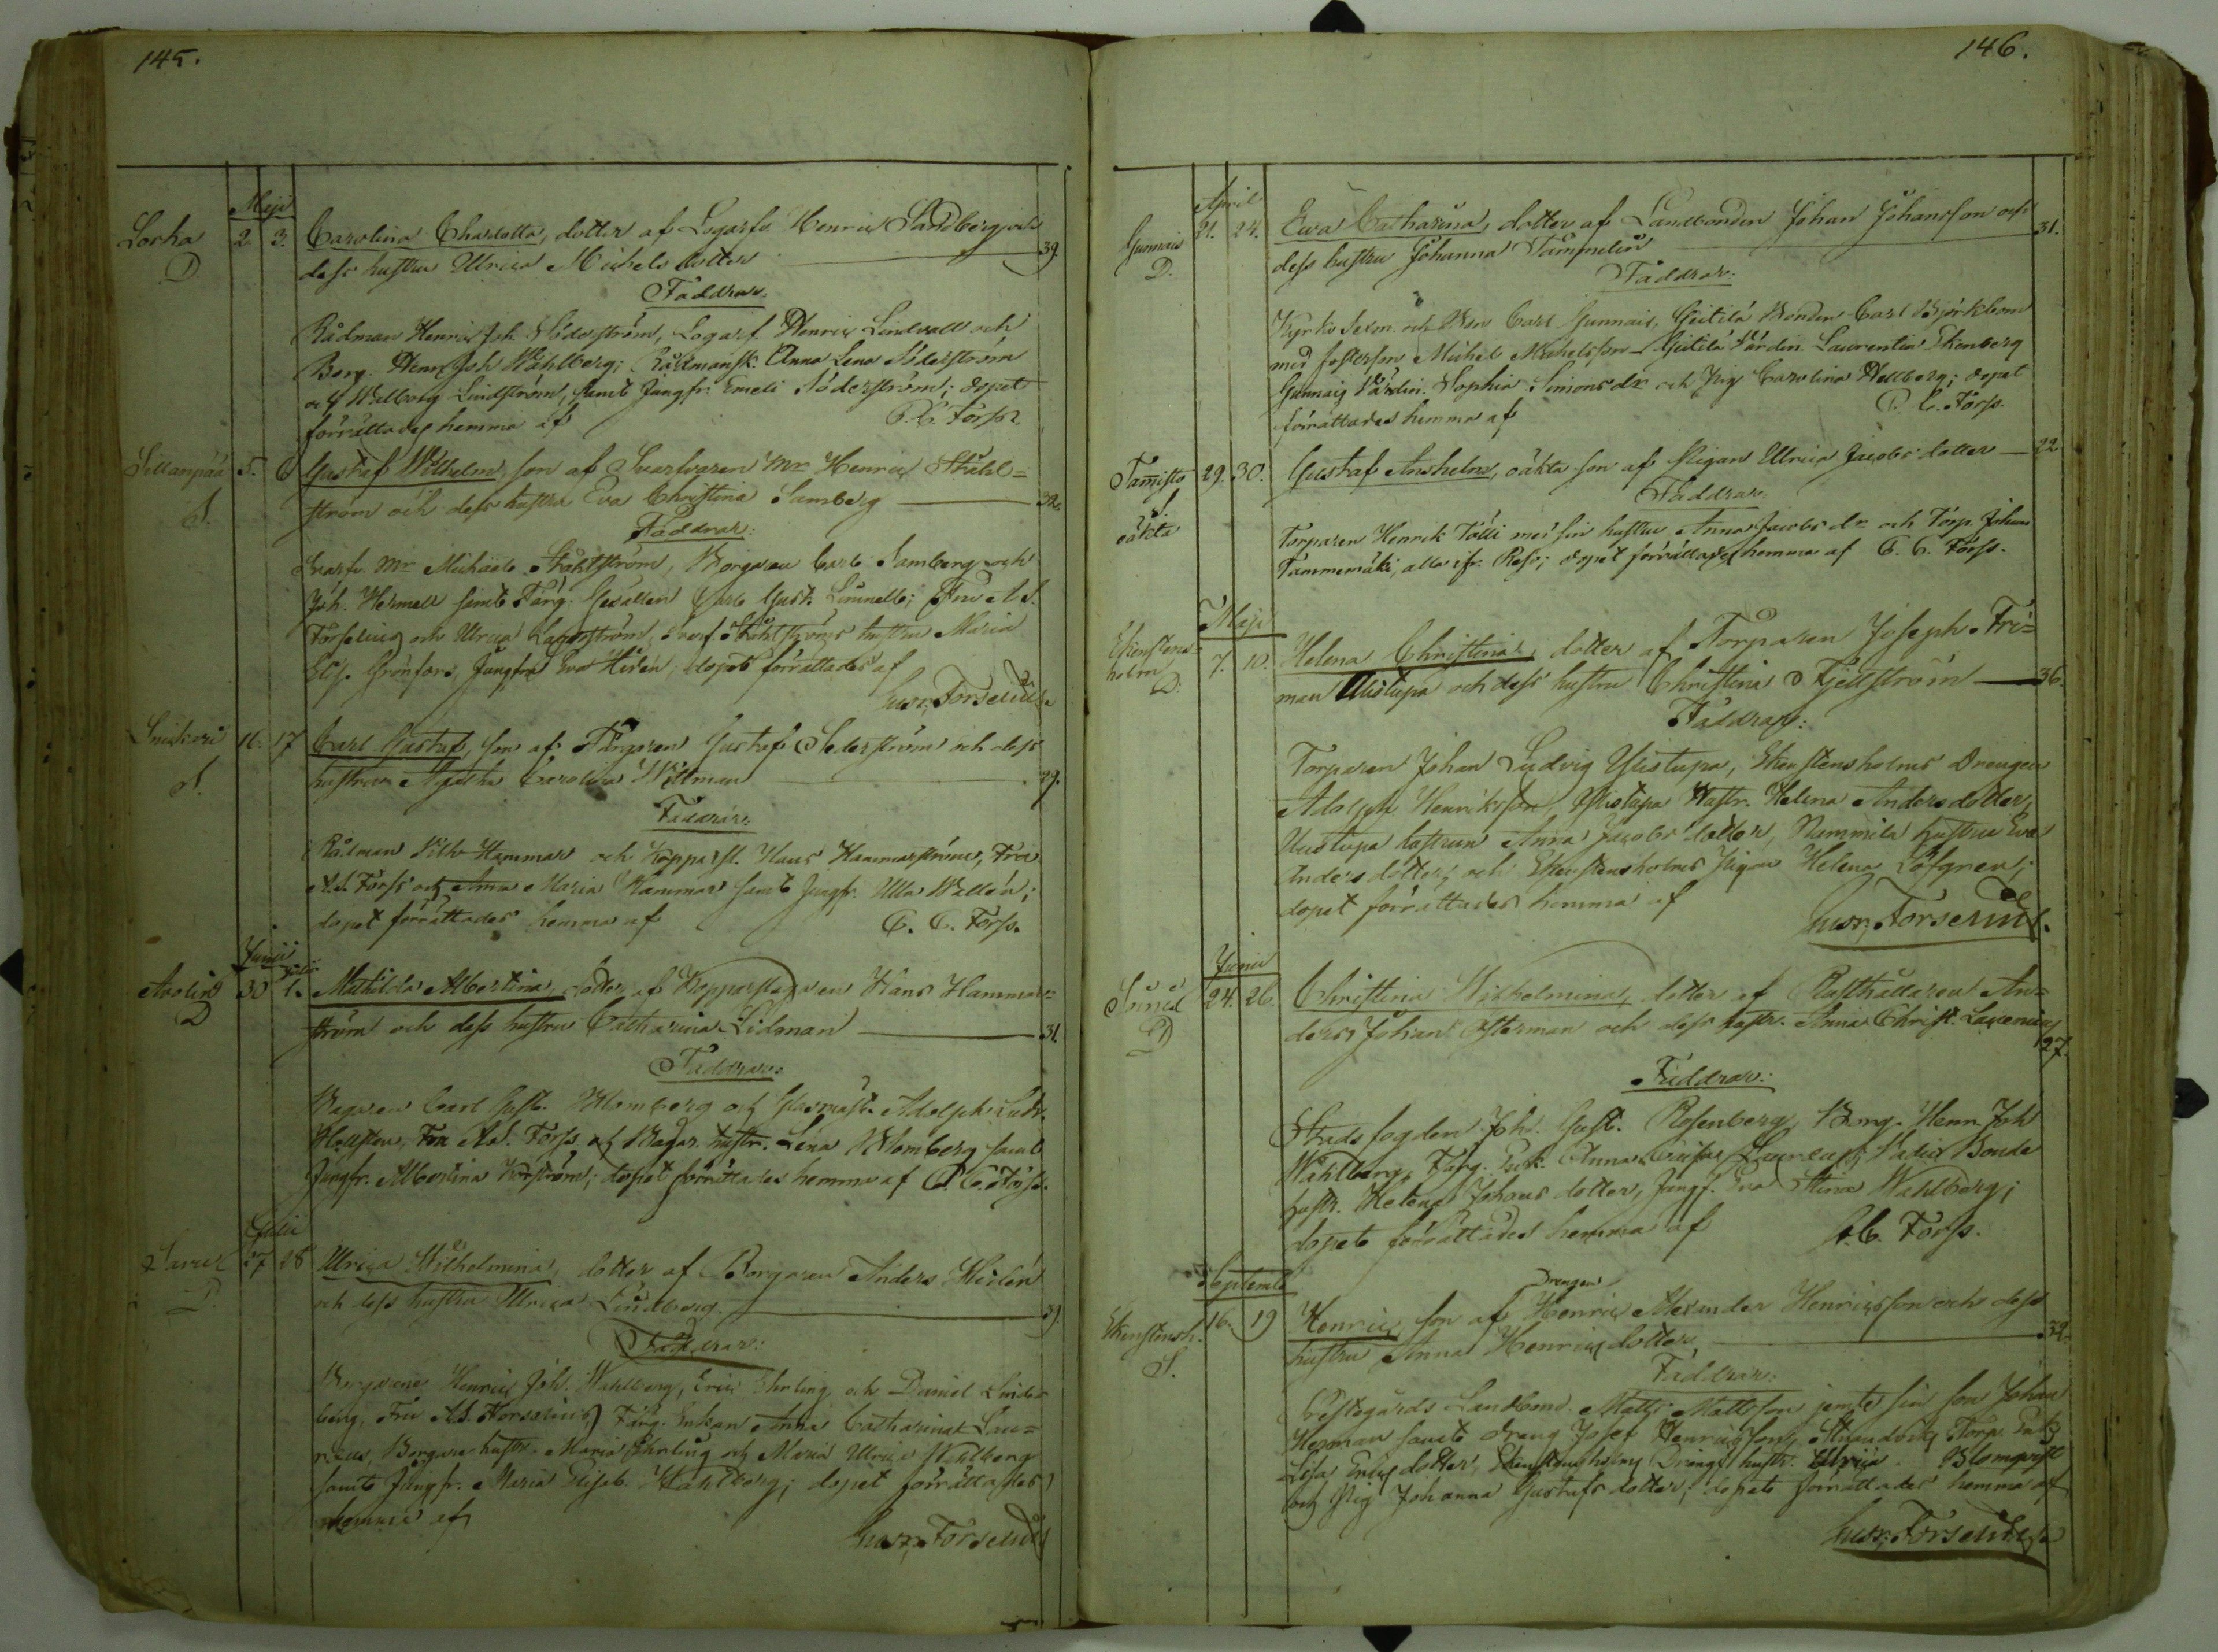 145.
Maji
Lorha 2. 3. Carolina Charlotta, dotter af Logarfv. Henric Sandberg och
D. dess hustru Ulrica Michels dotter 39.
Faddrar:
Rådman Henric Joh. Söderström, Logarf. Henric Lindvall och
Borg. Henr. Joh. Wahlberg; Rådmansk. Anna Lena Söderström
och Walborg Lindström, samt Jungfr. Emeli Söderström; dopet
förrättades hemma af C. C. Forss.
Sillanpää 5. 6 Gustaf Wilhelm, son af Svarfvaren Mr Henric Ståhl=
S. ström och dess hustru Eva Christina Samberg 32.
Faddrar:
Svarfv. Mr Michael Ståhlström, Borgaren Carl Samberg och
Joh. Hermell samt Färg. Gesällen Carl Gust. Linnell; Fru A. S.
Forselius och Ulrica Lagerström, Svarf. Ståhlströms hustru Maria
Elis. Grönfors, Jungfru Eva Hidén; dopet förrättades af
Gust. Forselius.
16. 17 Carl Gustaf, son af Färgaren Gustaf Sederström och dess
S. hustru Agatha Carolina Wittman 29.
Faddrar:
Rådman Wilh. Hammar och Kopparsl. Hans Hammarström, Fru
A. S. Forss och Anna Maria Hammar samt Jungfr. Ulla Wallén;
dopet förrättades hemma af C. C. Forss.
Junii Julii
Avolin 30 1. Mathilda Albertina, dotter af Kopparslagaren Hans Hammar=
D ström och dess hustru Catharina Lidman 31.
Faddrar:
Bagaren Carl Gust. Blomberg och Glasmäst. Adolph Ludv.
Hellsten, Fru A. S. Forss och Bagar. hustr. Lena Blomberg samt
Jungfr. Albertina Norström; dopet förrättades hemma af C. C. Forss.
Julii
27 28 Ulrica Wilhelmina, dotter af Borgaren Anders Hidén
D. och dess hustru Ulrica Lindberg. 39
Faddrar:
Borgarene Henric Joh. Wahlberg, Eric Ehrling och Daniel Lind=
berg, Fru A. S. Forselius, Färg. Enkan Anna Catharina Lau=
reus, Borgare hustr. Maria Ehrling och Maria Ulrica Wahlberg
samt Jungfr. Maria Elisab. Wahlberg; dopet förrättades
hemma af
Gust. Forselius
146.
April
Gunnais 21. 24. Eva Catharina, dotter af Landbonden Johan Johansson och 31.
D. dess hustru Johanna Tammelin
Faddrar:
Kyrko Sexm. och Bon. Carl Gunnais, Gutilä Bonden Carl Björkbom
med fosterson Michel Michelsson, Gutilä Värdin. Laurentia Ekenberg
Gunnais Värdin. Sophia Simons dr och Pig. Carolina Hellberg; dopet
förrättades hemma af C. C. Forss.
Tamisto 29. 30. Gustaf Anshelm, oäkta son af Pigan Ulrica Jacobs dotter 22
S.
oäkta
Faddrar:
Torparen Henrik Tölli med sin hustru Anna Jacobs dr och Torp. Johan
Tammenmäki, alla ifr. Reso; dopet förrättades hemma af C. C. Forss.
Maji
Ekenstens=
holm 7. 10. Helena Christina, dotter af Torparen Joseph Fri=
D. man Ulistupa och dess hustru Christina Fjellström 36.
Faddrar:
Torparen Johan Ludvig Ylistupa, Ekenstensholms Drengen
Adolph Henriksson, Ylistupa Hustr. Helena Anders dotter,
Uustupa hustrun Anna Jacobs dotter, Nammila hustru Eva
Anders dotter, och Ekenstensholms Pigan Helena Löfgren;
dopet förrättades hemma af
Gust. Forselius.
Junii
24. 26. Christina Wilhelmina, dotter af Rusthållaren An=
D ders Johan Österman och dess hustr. Anna Christ. Laurenius
27.
Faddrar:
Stadsfogden Joh. Gust. Rosenberg, Borg. Henr. Joh.
Wahlberg, Färg. Enk. Anna Cajsa Laureus, Bonde
hustr. Helena Johans dotter, Jungf. Eva Stina Wahlberg;
dopet förrättades hemma af C. C. Forss.
September
Drengen
Ekenstensh. 16. 19 Henric, son af Henric Alexander Henricsson och dess
S. hustru Anna Henrics dotter, 32.
Faddrar:
Prestegårds Landbond. Matts Mattsson jemte sin son Johan
Herman samt dreng Josef Henricsson, Strandvik Torp. Enk.
Lisa Erics dotter, Ekenstensholms Drengs hustr. Ulrica Blomqvist
och Pig. Johanna Gustafs dotter; dopet förrättades hemma af
Gust. Forselius